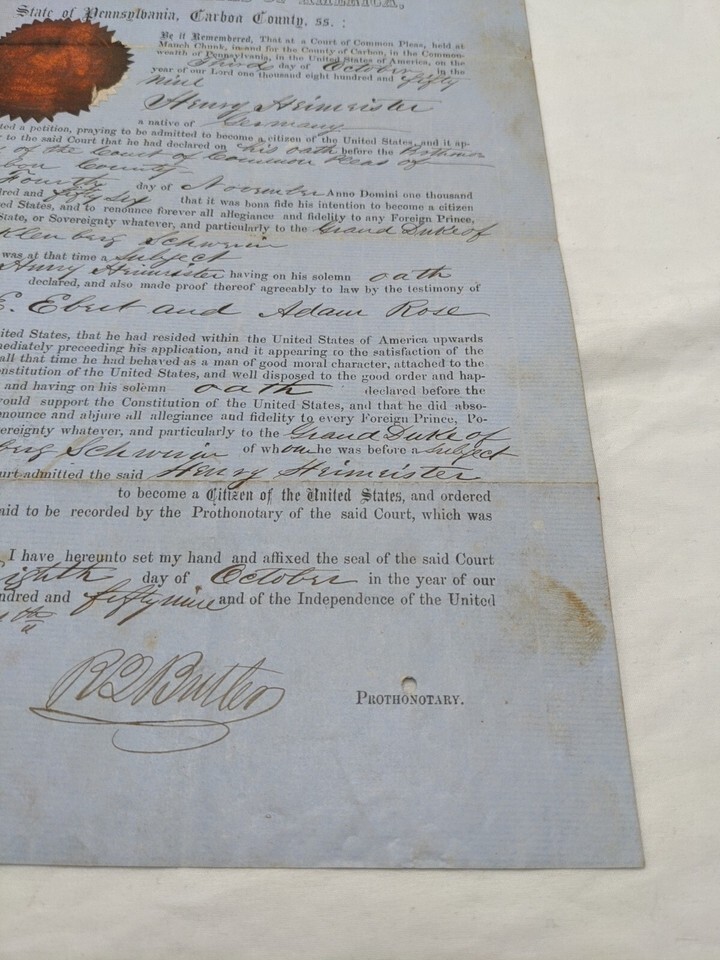 OF AMERICA,
State of Pennsylvania, Carbon County, ss. :
Be it Remembered, That at a Court of Common Pleas, held at
Mauch Chunk, in and for the County of Carbon, in the Common-
wealth of Pennsylvania, in the United States of America, on the
Third day of October in the
year of our Lord one thousand eight hundred and fifty
nine
Henry Heimeister
a native of Germany
ted a petition, praying to be admitted to become a citizen of the United States, and it ap-
to the said Court that he had declared on his oath before the Prothonor
of the Court of Common Pleas of
bon County
Fourth day of November Anno Domini one thousand
dred and fifty six that it was bona fide his intention to become a citizen
ed States, and to renounce forever all allegiance and fidelity to any Foreign Prince,
State, or Sovereignty whatever, and particularly to the Grand Duke of
klenberg Schwerin
was at that time a Subject
Henry Heimeister having on his solemn oath
declared, and also made proof thereof agreeably to law by the testimony of
E. Ebert and Adam Rose
ited States, that he had resided within the United States of America upwards
mediately preceeding his application, and it appearing to the satisfaction of the
all that time he had behaved as a man of good moral character, attached to the
nstitution of the United States, and well disposed to the good order and hap-
and having on his solemn oath declared before the
would support the Constitution of the United States, and that he did abso-
enounce and abjure all allegiance and fidelity to every Foreign Prince, Po-
ereignty whatever, and particularly to the Grand Duke of
berg Schwerin of whom he was before a Subject
urt admitted the said Henry Heimeister
to become a Citizen of the United States, and ordered
aid to be recorded by the Prothonotary of the said Court, which was
I have hereunto set my hand and affixed the seal of the said Court
Eighth day of October in the year of our
ndred and fifty nine and of the Independence of the United
th
R Q Butler
PROTHONOTARY.